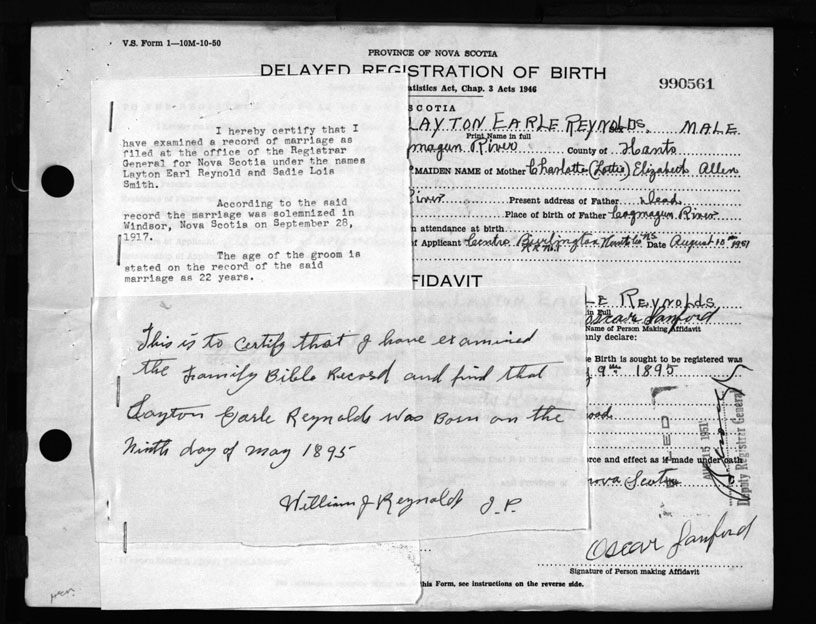 V.S. Form 1—10M-10-50
PROVINCE OF NOVA SCOTIA
DELAYED REGISTRATION OF BIRTH
990561
atistics Act, Chap. 3 Acts 1946
SCOTIA
LAYTON EARLE REYNOLDS, MALE
Print Name in full
magun River County of Hants
MAIDEN NAME of Mother Charlotte (Lottie) Elizabeth Allen
River Present address of Father Dead
Place of birth of Father Cogmagun River
n attendance at birth
f Applicant Centre Burlington Hants Co NS Date August 10th 1951
R.R. No 1
I hereby certify that I
have examined a record of marriage as
filed at the office of the Registrar
General for Nova Scotia under the names
Layton Earl Reynold and Sadie Lois
Smith.
According to the said
record the marriage was solemnized in
Windsor, Nova Scotia on September 28,
1917.
The age of the groom is
stated on the record of the said
marriage as 22 years.
FIDAVIT
LE REYNOLDS
in Full
Oscar Sanford
Name of Person Making Affidavit
nly declare:
e Birth is sought to be registered was
9th 1895
orce and effect as if made under oath
nova Scotia
FILED
AUG 15 1951
Deputy Registrar General
This is to certify that I have examined
the Family Bible Record and find that
Layton Earle Reynolds was Born on the
Ninth day of May 1895
William J Reynolds J.P.
Oscar Sanford
Signature of Person making Affidavit
his Form, see instructions on the reverse side.